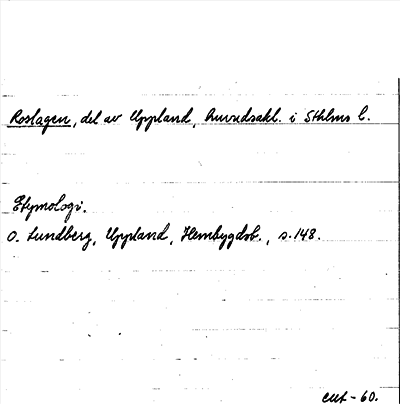 Roslagen, del av Uppland, huvudsakl. i Sthlms l.
Etymologi.
O. Lundberg, Uppland, Hembygdsb., s. 148.
EWt - 60.